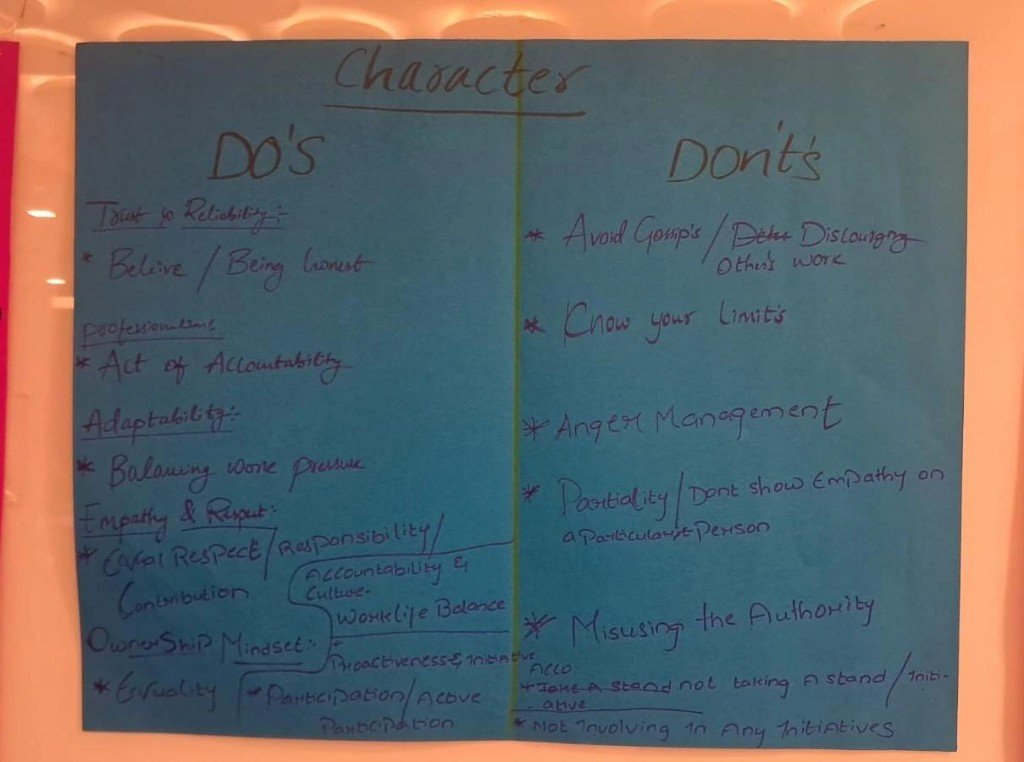 Character
DO'S
Trust & Reliability:-
* Beleive / Being honest
professionalisms
* Act of Accountability
Adaptability:-
* Balancing work pressure
Empathy & Respect:-
* Eaual Respect / Responsibility /
Contribution
Accountability &
Culture-
Worklife Balance
OwnerShip Mindset:-
* Proactiveness & Initiative
* Eavuality
* Participation / Active
Participation
Dont's
* Avoid Gossip's / Discouraging
Other's work
* Know your Limit's
* Anger Management
* Partiality / Dont show Empathy on
a Particular person
* Misusing the Authority
Acco
* Take A stand not taking A stand / Initi-
ative
* Not Involving In Any Initiatives